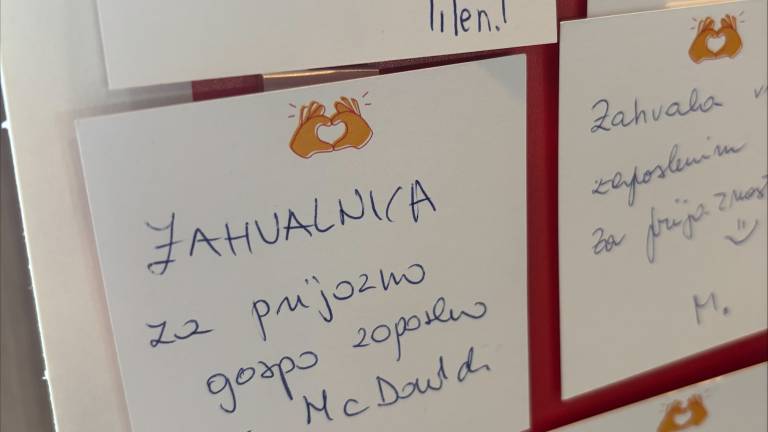 Tilen.!
ZAHVALNICA
za prijazno
gospo zaposleno
McDonld
Zahvala
zaposlenim
za prijaznost
M.